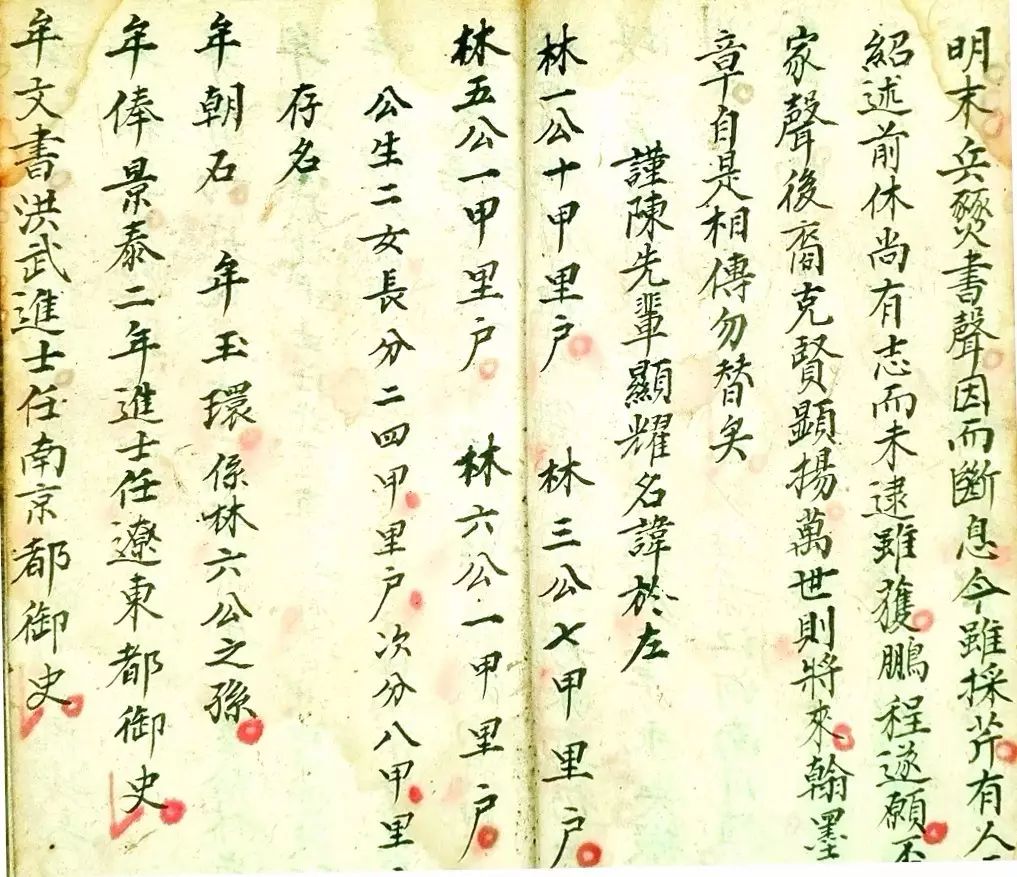 明末兵燹書聲因而斷息今雖採芹有人
紹述前休尚有志而未逮雖獲鵬程遂願
家聲後裔克賢顕揚萬世則將來翰墨
章自是相傳勿替矣
謹陳先輩顯耀名諱於左
林一公十甲里户 林三公七甲里户
林五公一甲里户 林六公一甲里户
公生二女長分二四甲里户次分八甲里
存名
年朝石 年玉環 係林六公之孫
年俸景泰二年進士任遼東都御史
年文書洪武進士任南京都御史